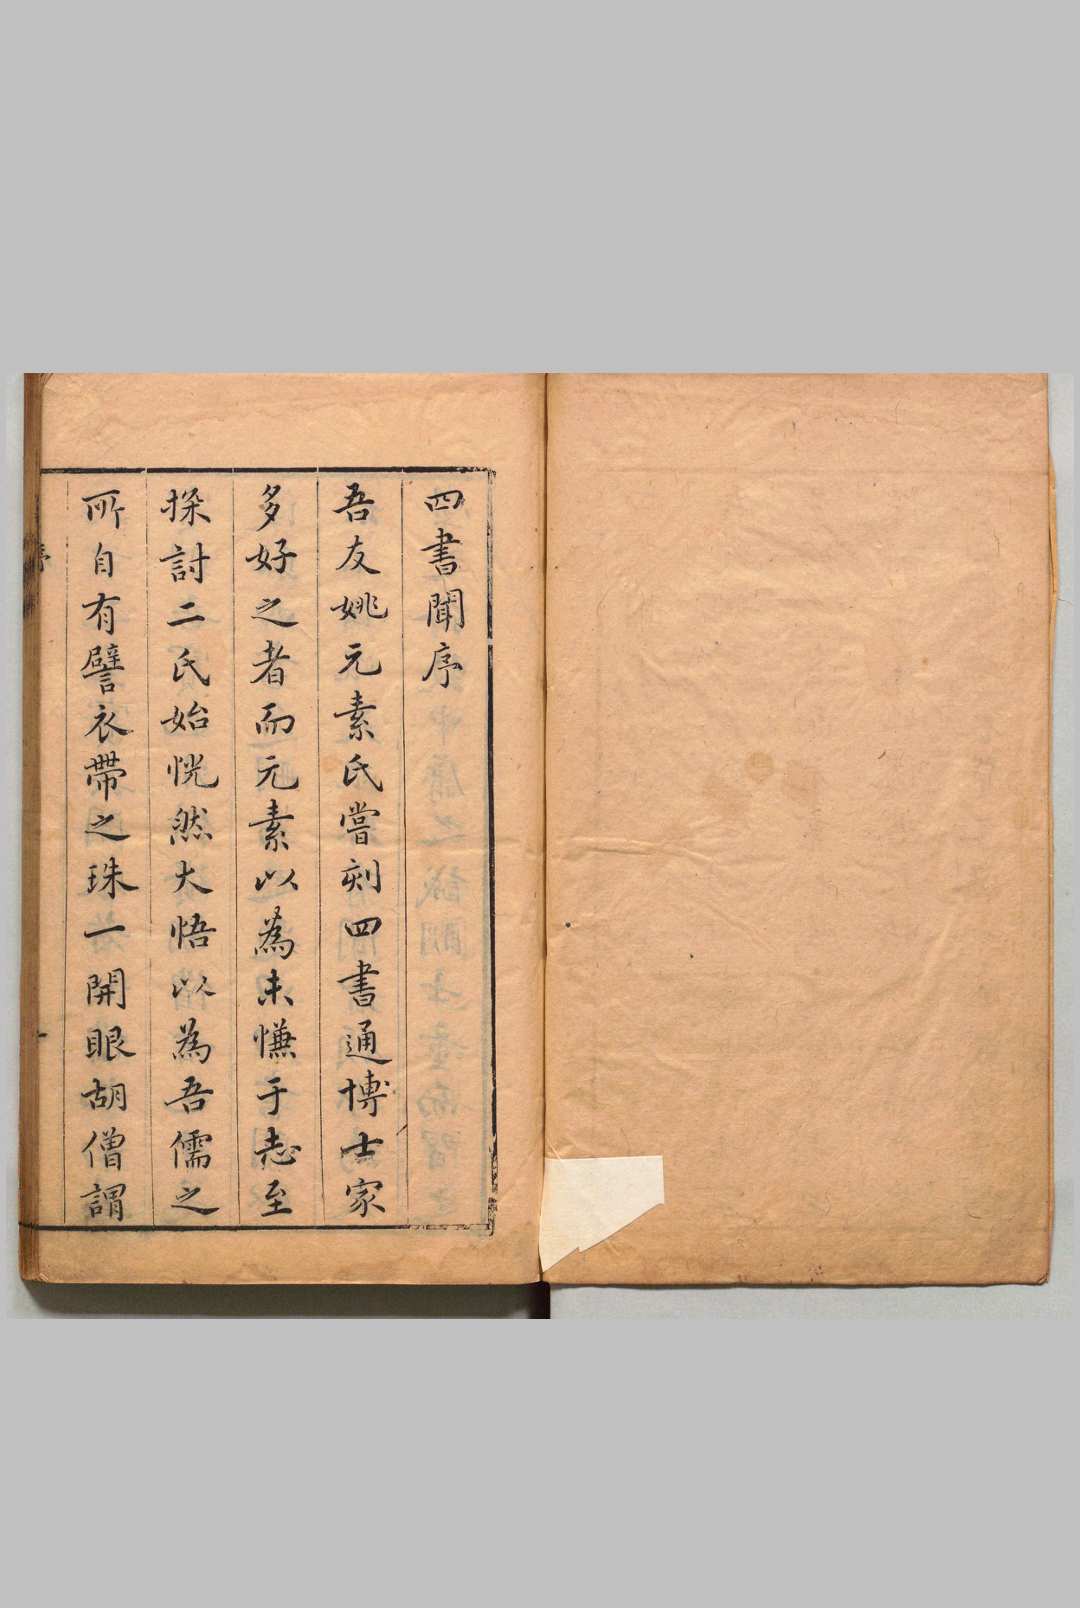 四書聞序
吾友姚元素氏嘗刻四書通博士家
多好之者而元素以為未慊于志至
探討二氏始恍然大悟以為吾儒之
所自有譬衣帶之珠一開眼胡僧謂
序
一